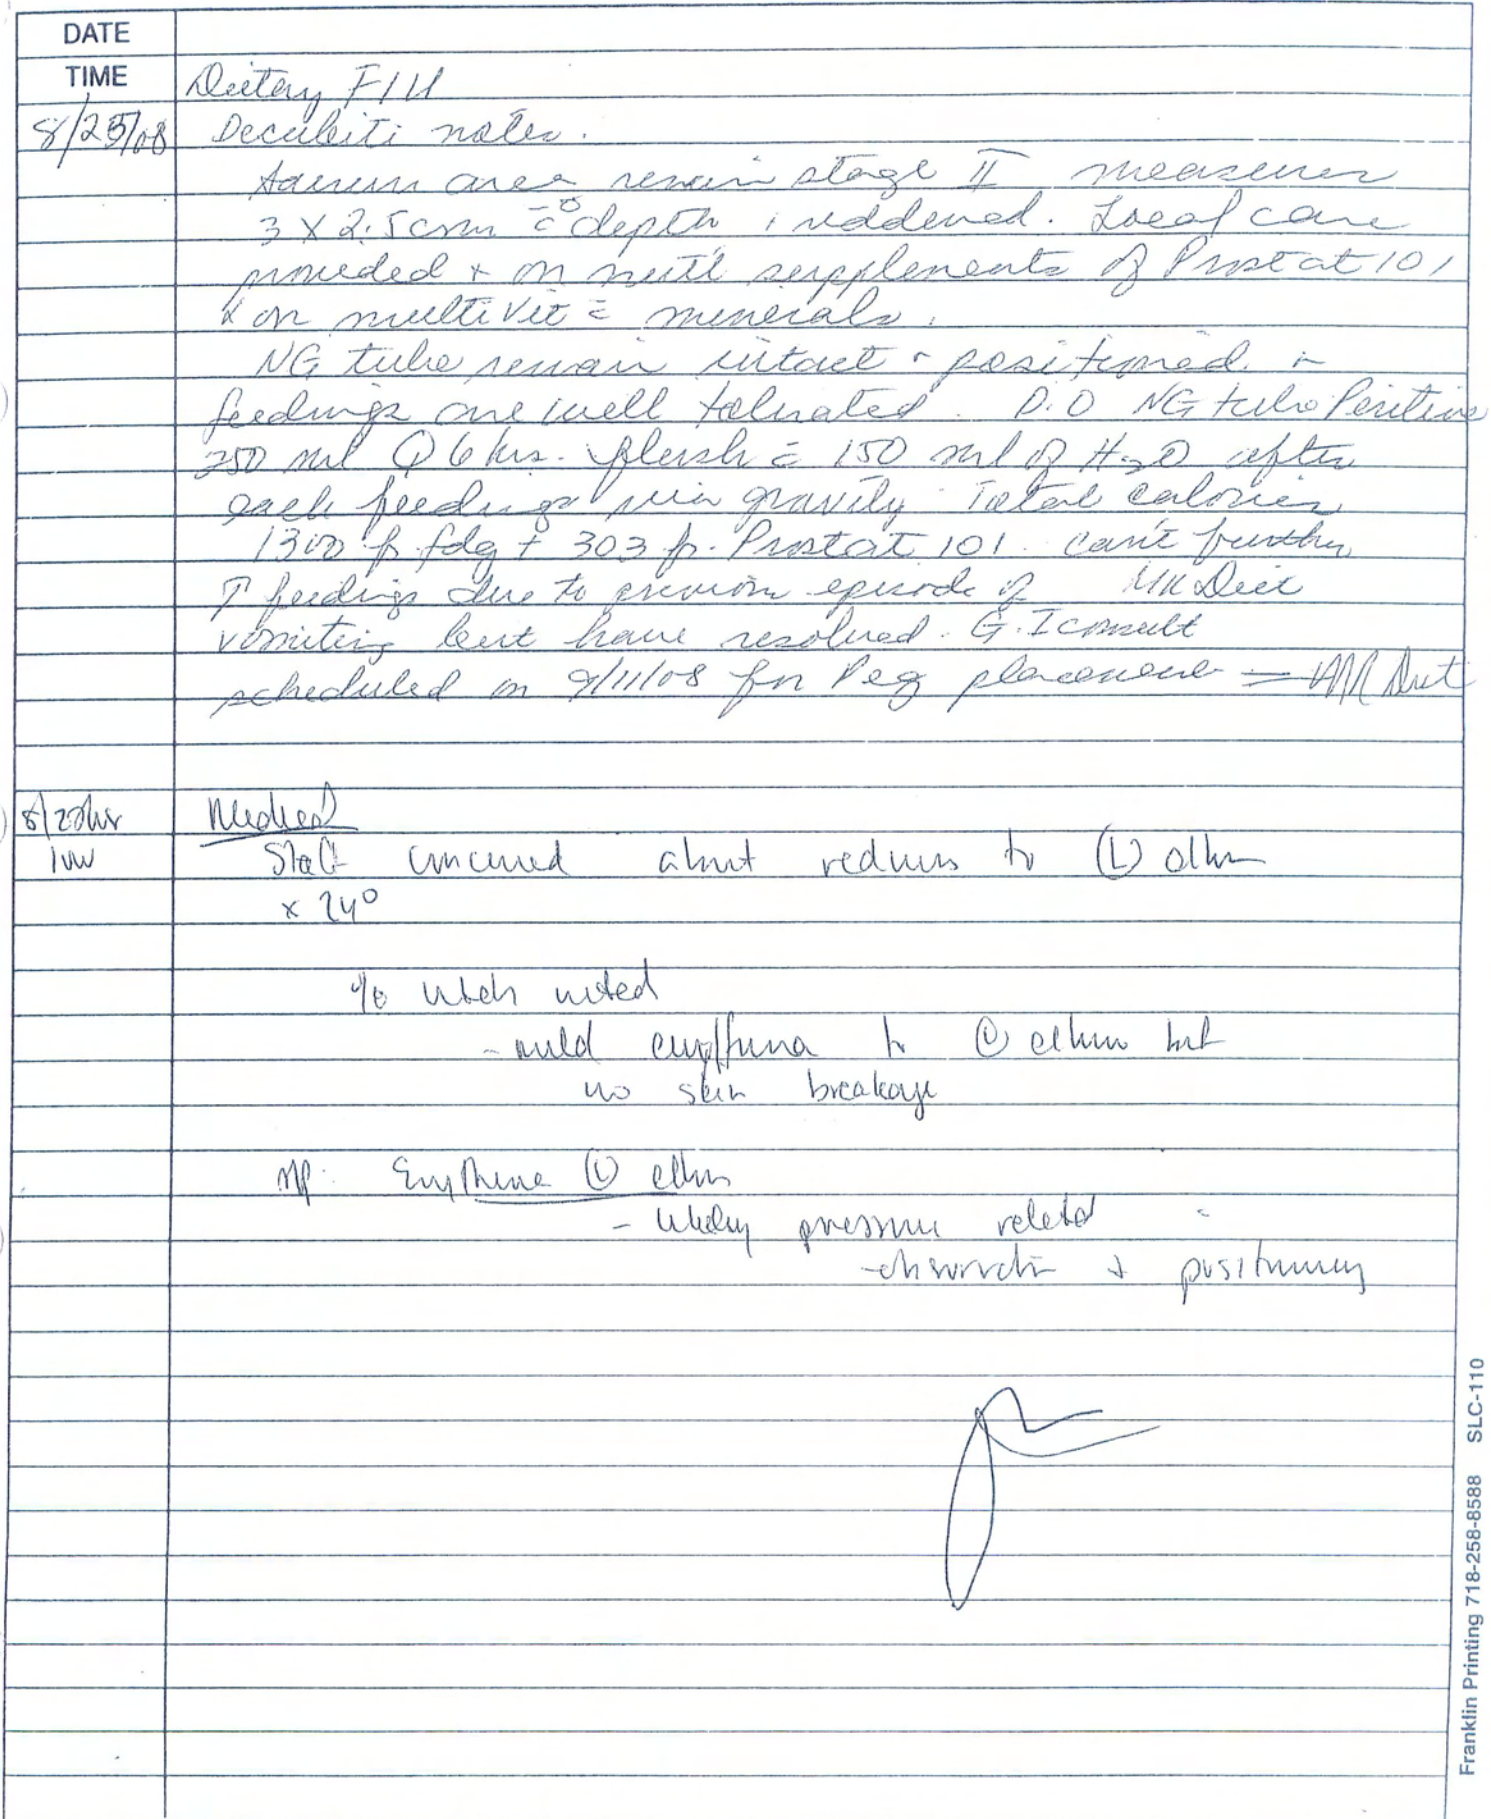 DATE
TIME
Dietary F/U
8/25/08 Decubiti notes.
area remain stage II measures
3 X 2.5cm c̄ depth, reddened. Local care
provided + on nutl supplements of Prostat 101
& on multivit c̄ minerals.
NG tube remain intact + positioned
feedings are well tolerated. D.O NG tube
250 ml Q 6 hrs. flush c̄ 150 ml of H2O after
each feedings via gravity. Total calories
1300 f. fdg + 303 f. Prostat 101. can't further
↑ feedings due to previous episode of
vomiting but have resolved. G.I consult
scheduled on 9/11/08 for Peg placement
Medical
Staff concerned about redness to (L) elbow
x 24°
noted
- mild erythema to (L) elbow but
no skin breakage
Erythema (L) elbow
- likely pressure related
- observation + positioning
Franklin Printing 718-258-8588 SLC-110